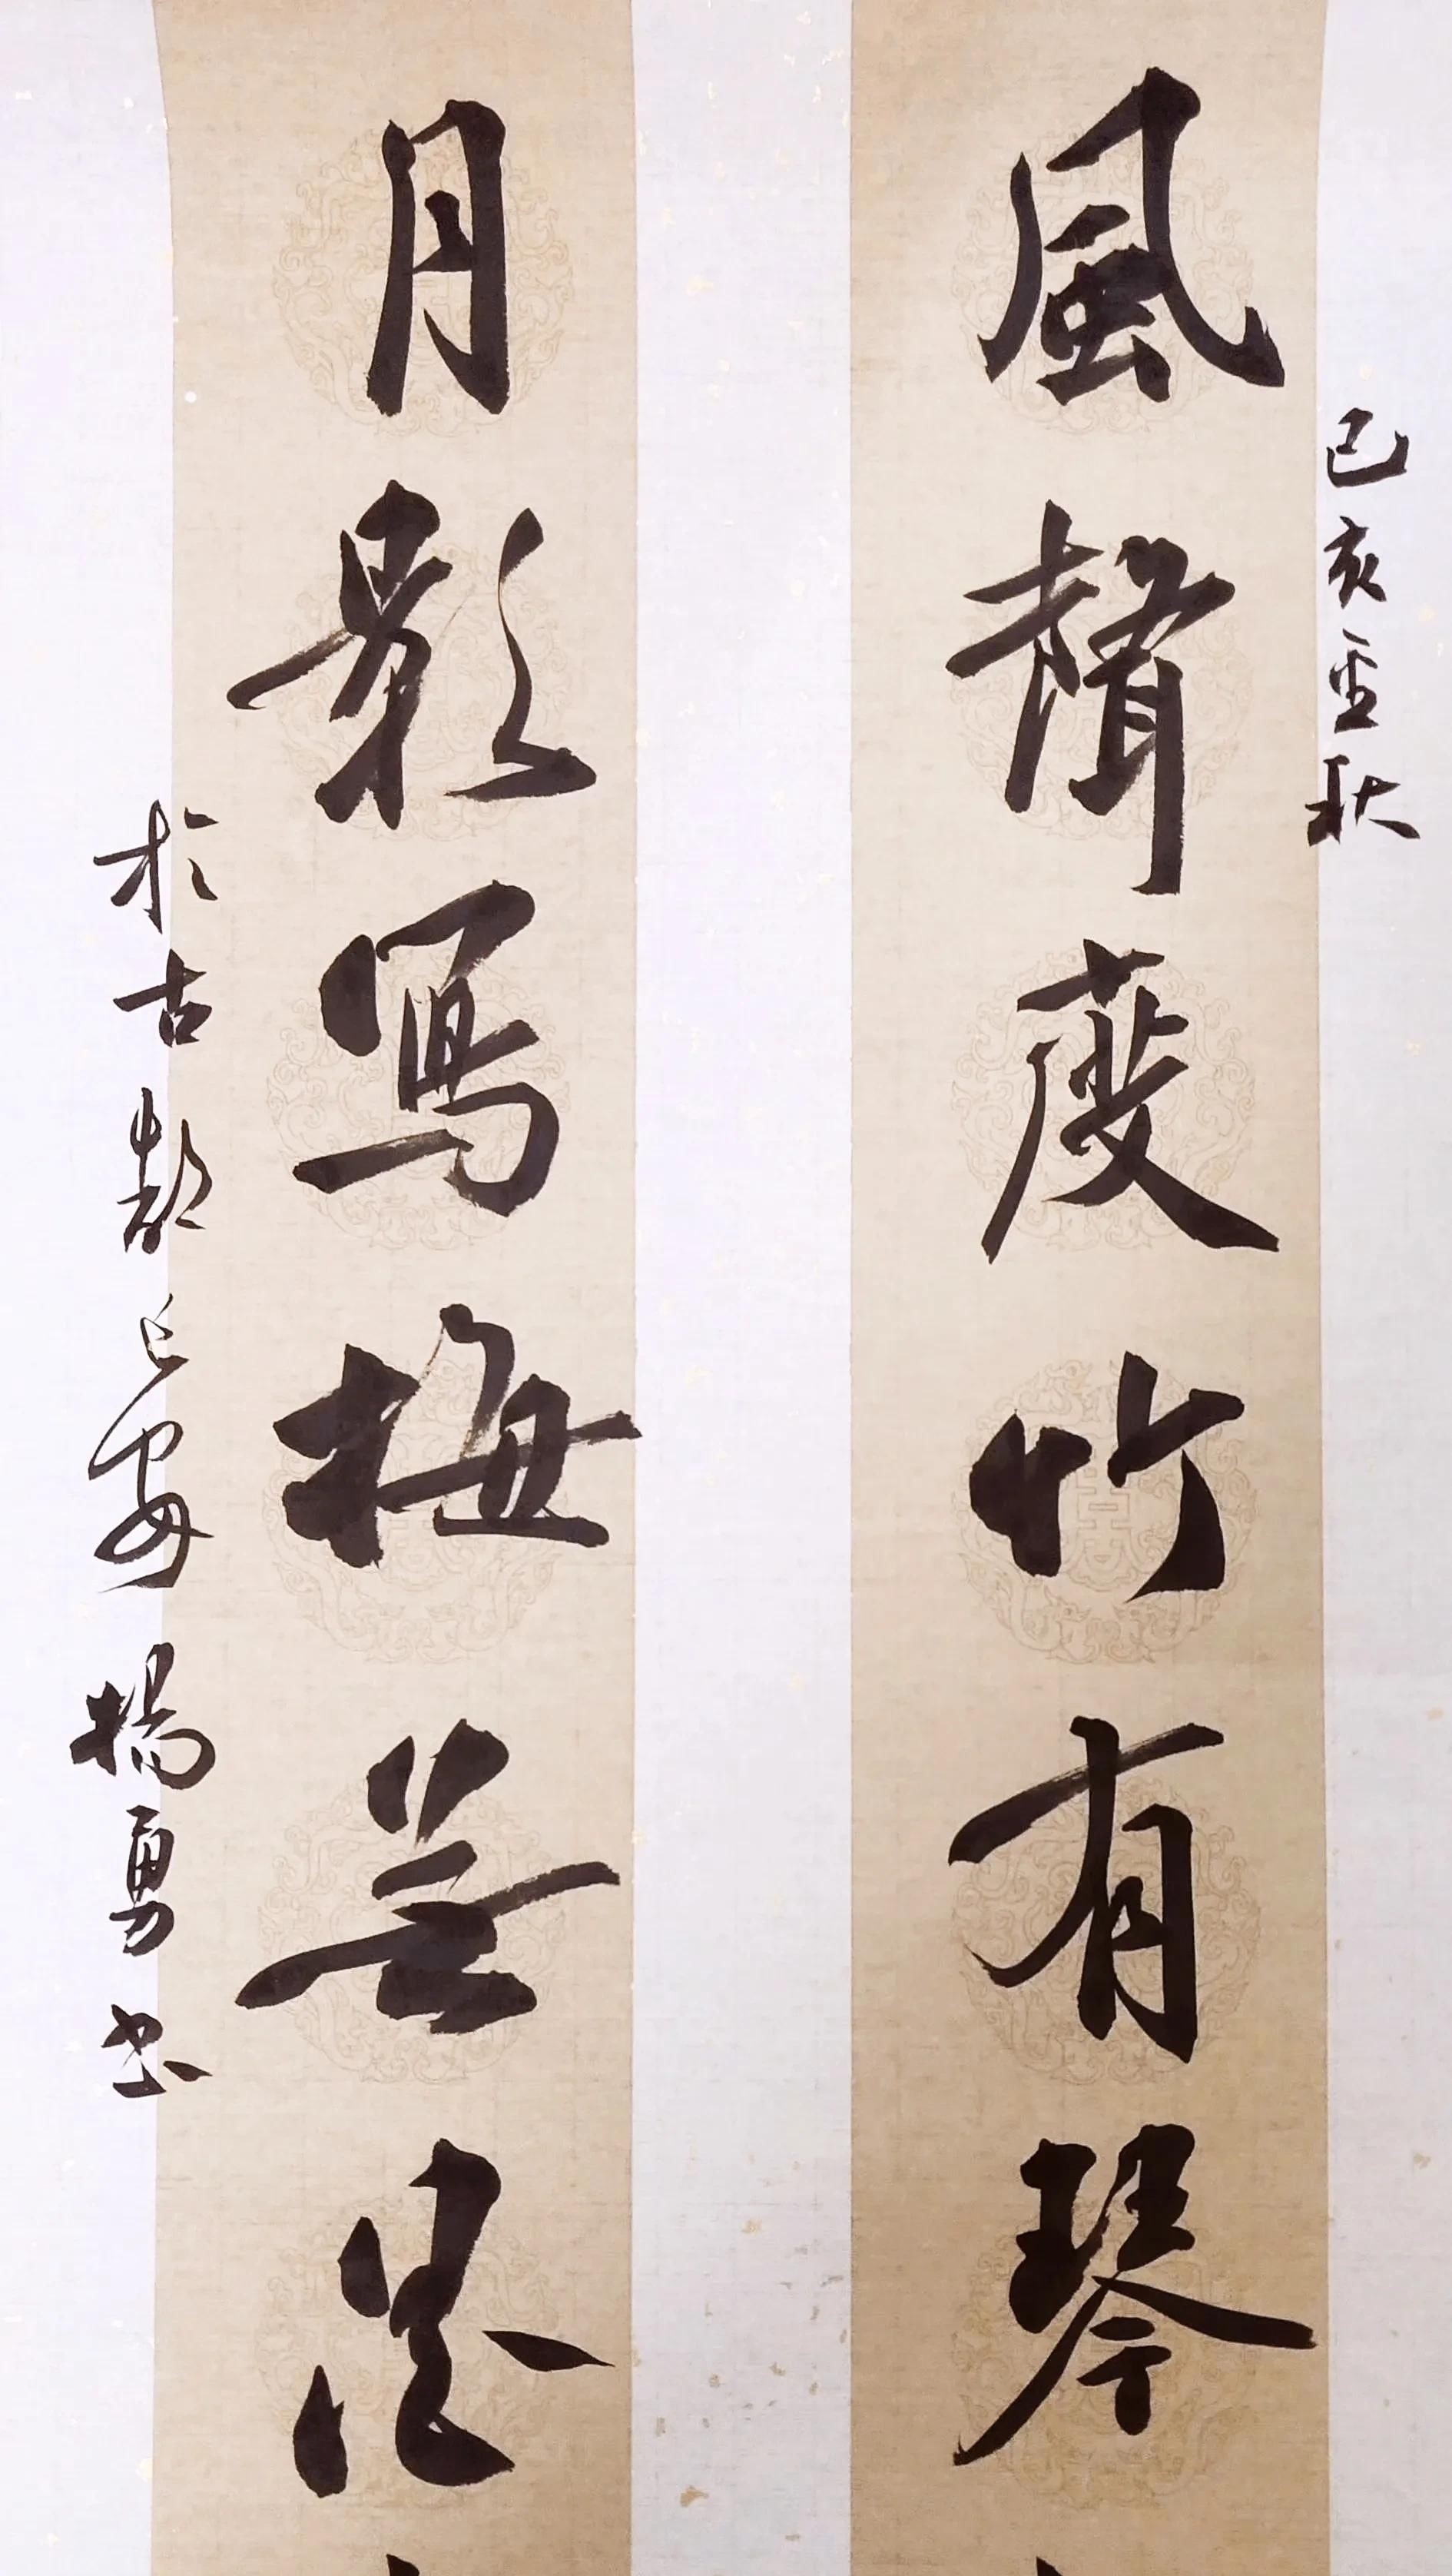 己亥金秋
風聲度竹有琴
月影寫梅無墨
於古都长安楊勇书